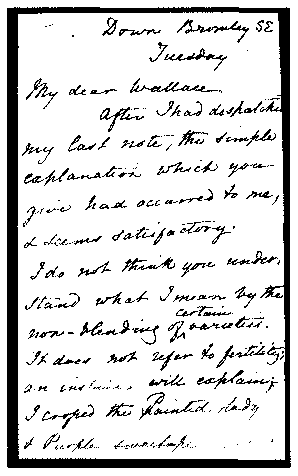 Down Bromley SE
Tuesday
My dear Wallace
After I had despatched
my last note, the simple
explanation which you
give had occurred to me,
& seems satisfactory.
I do not think you under-
stand what I mean by the
certain
non-blending of varieties.
It does not refer to fertility;
an instance will explain;
I crossed the Painted Lady
& Purple sweetpeas